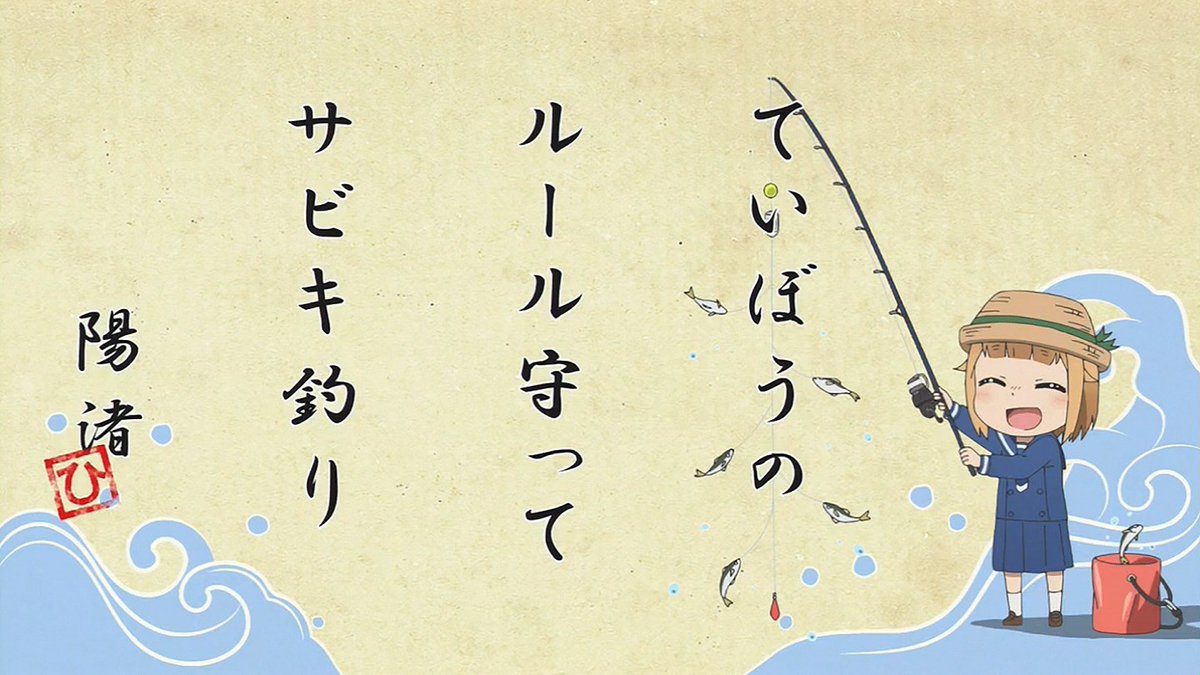 ていぼうの
ルール守って
サビキ釣り
陽渚
ひ